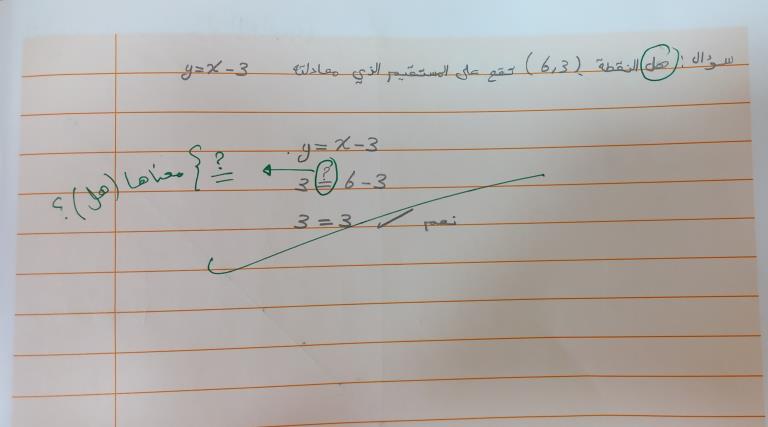 سؤال : هل النقطة (6,3) تقع على المستقيم الذي معادلته y=x-3
y=x-3
3 ≟ 6-3
≟ } معناها (هل) ؟
3=3 ✓ نعم